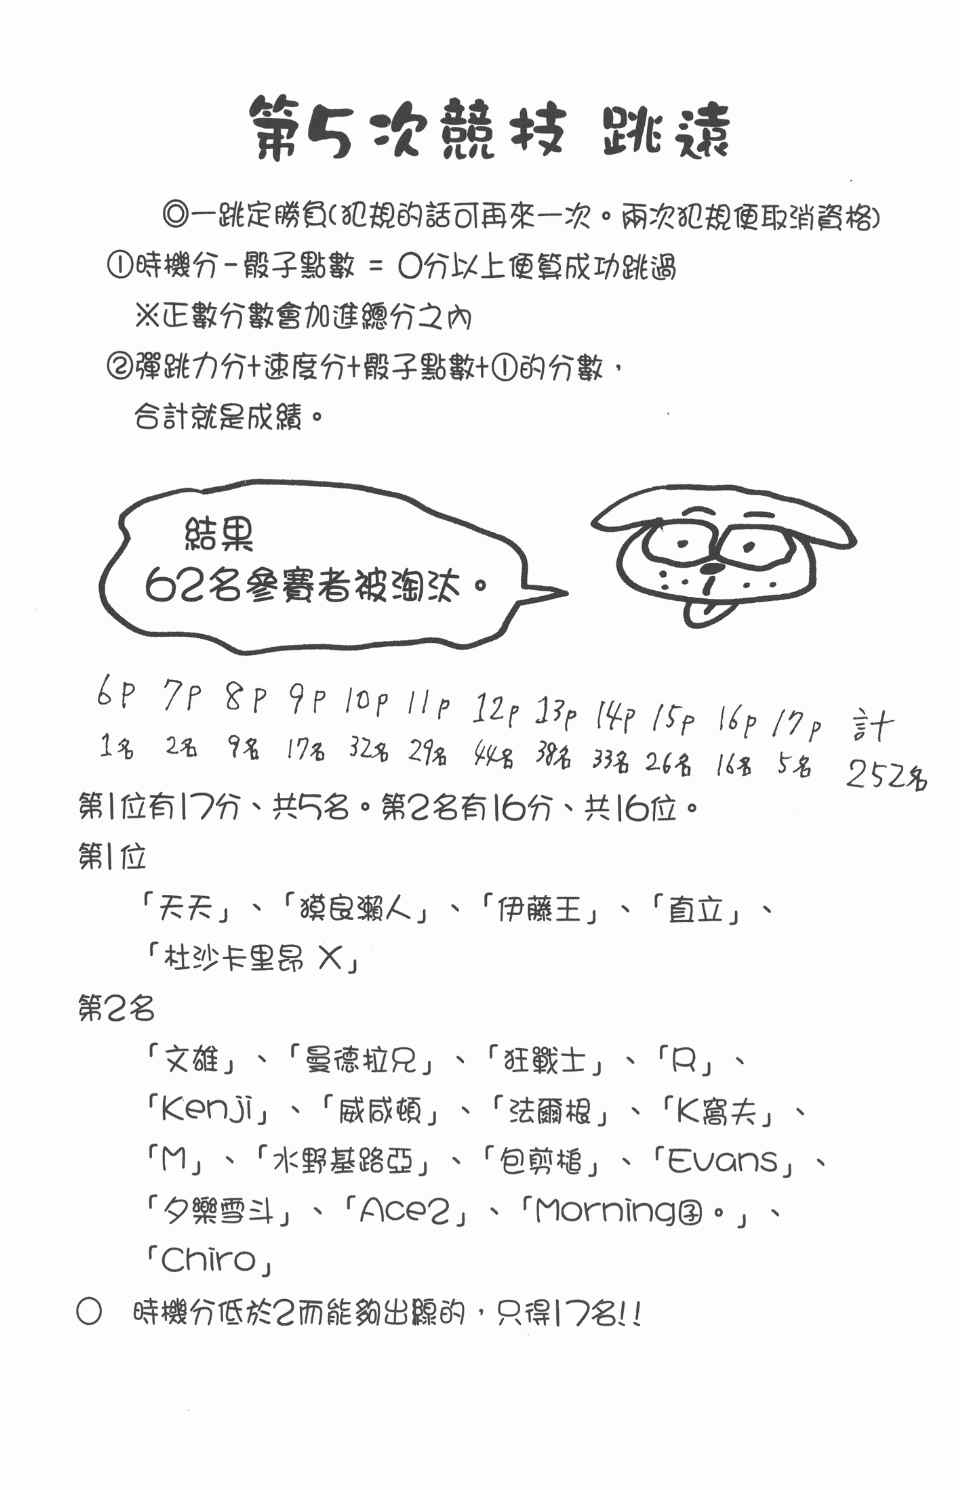 第5次競技 跳遠
◎一跳定勝負(犯規的話可再來一次。兩次犯規便取消資格)
①時機分-骰子點數 = 〇分以上便算成功跳過
※正數分數會加進總分之內
②彈跳力分+速度分+骰子點數+①的分數，
合計就是成績。
結果
62名參賽者被淘汰。
6p 7p 8p 9p 10p 11p 12p 13p 14p 15p 16p 17p 計
1名 2名 9名 17名 32名 29名 44名 38名 33名 26名 16名 5名 252名
第1位有17分、共5名。第2名有16分、共16位。
第1位
「天天」、「獏良瀨人」、「伊藤王」、「直立」、
「杜沙卡里昂 X」
第2名
「文雄」、「曼德拉兄」、「狂戰士」、「R」、
「Kenji」、「威咸頓」、「法爾根」、「K窩夫」、
「M」、「水野基路亞」、「包剪槌」、「Evans」、
「夕樂雪斗」、「Ace2」、「Morning囝。」、
「Chiro」
〇 時機分低於2而能夠出線的，只得17名!!